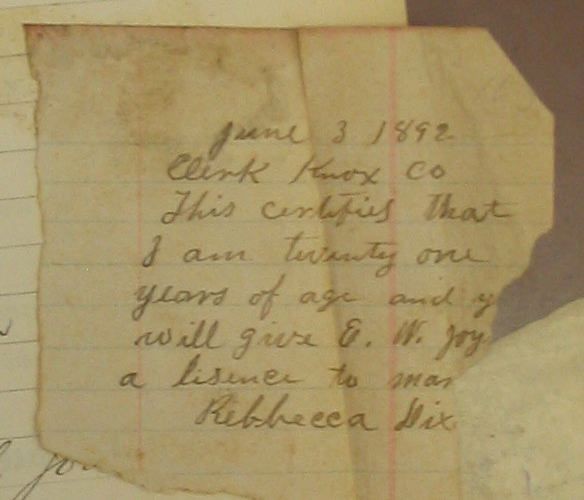 June 3 1892
Clerk Knox Co
This certifies that
I am twenty one
years of age and y
will give E. W. Joy
a lisence to mar
Rebbecca Dix